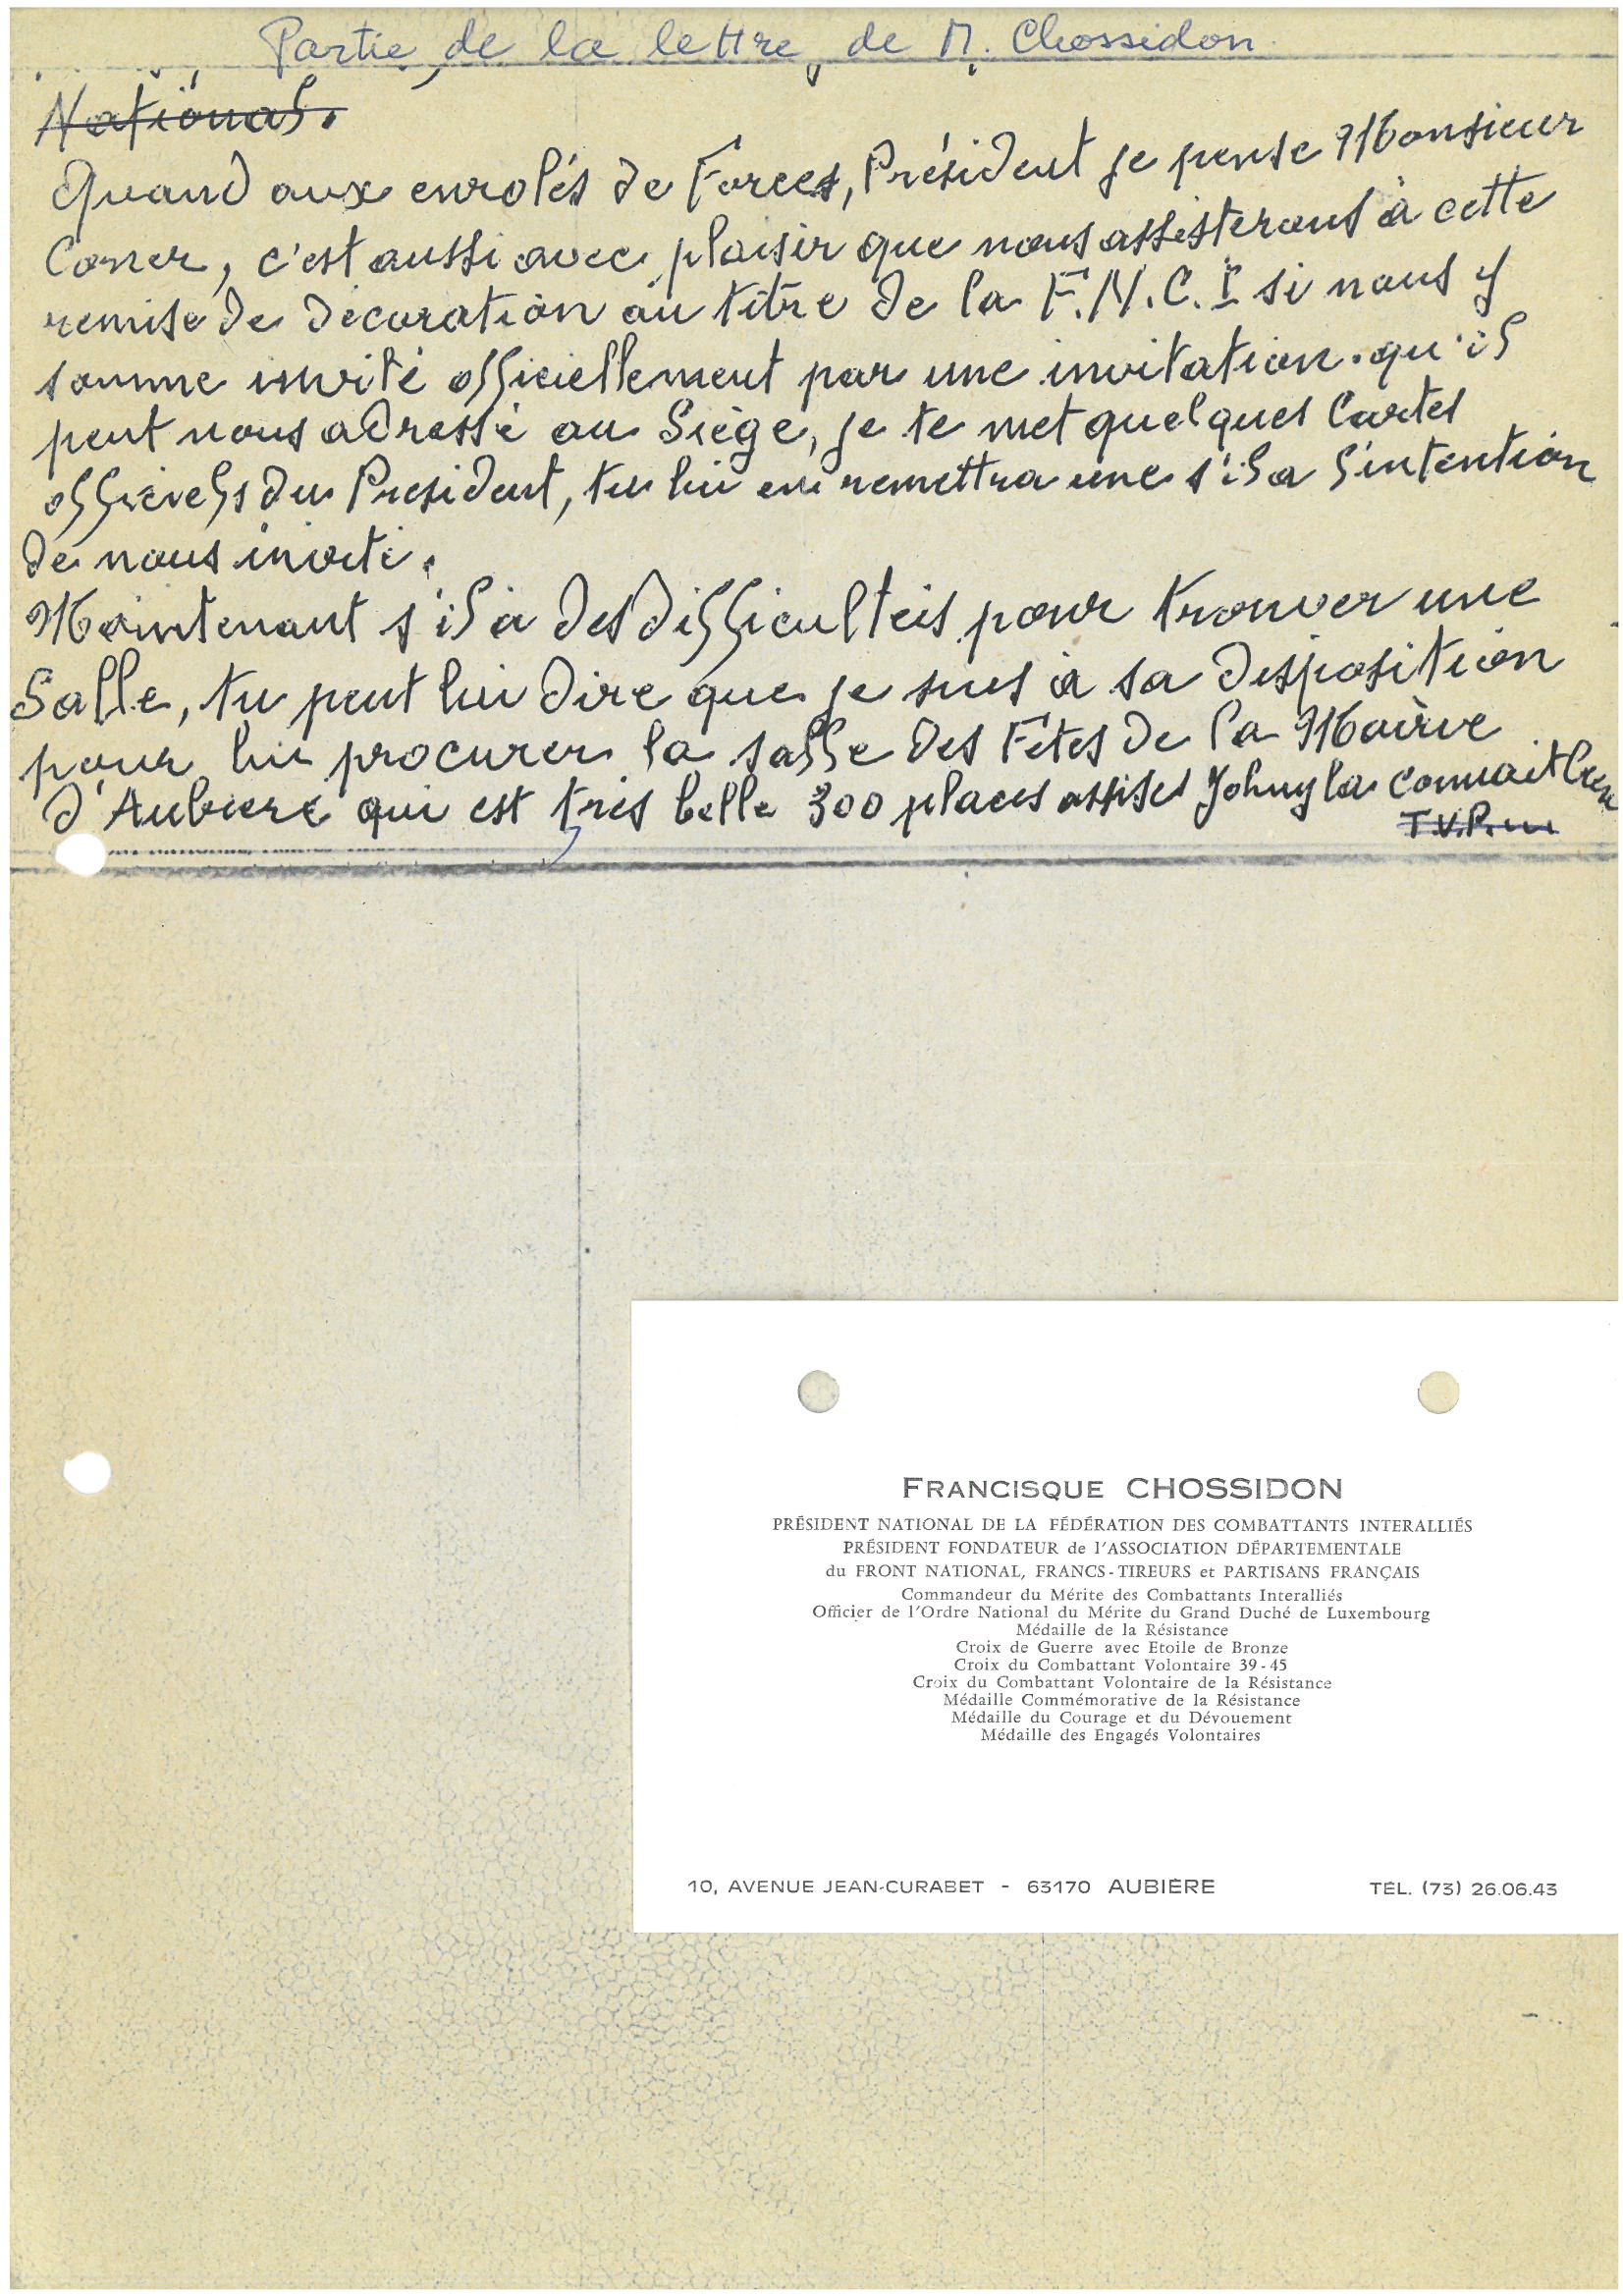 Partie de la lettre de M. Chossidon
National.
Quand aux enrolés de Forces, Président je pense Monsieur
Corner, c'est aussi avec plaisir que nous assisterons à cette
remise de décoration au titre de la F.N.C.I si nous y
somme invité officiellement par une invitation qu'il
peut nous adressé au Siège, je te met quelques Cartes
officiels du President, tu lui en remettra une s'il a l'intention
de nous invité.
Maintenant s'il a des difficultéis pour trouver une
Salle, tu peut lui dire que je suis à sa desposition
pour lui procurer la salle des Fêtes de la Mairie
d'Aubiere qui est très belle 300 places assises Johny la connait bien
T.V.P.
FRANCISQUE CHOSSIDON
PRÉSIDENT NATIONAL DE LA FÉDÉRATION DES COMBATTANTS INTERALLIÉS
PRÉSIDENT FONDATEUR de l'ASSOCIATION DÉPARTEMENTALE
du FRONT NATIONAL, FRANCS-TIREURS et PARTISANS FRANÇAIS
Commandeur du Mérite des Combattants Interalliés
Officier de l'Ordre National du Mérite du Grand Duché de Luxembourg
Médaille de la Résistance
Croix de Guerre avec Etoile de Bronze
Croix du Combattant Volontaire 39-45
Croix du Combattant Volontaire de la Résistance
Médaille Commémorative de la Résistance
Médaille du Courage et du Dévouement
Médaille des Engagés Volontaires
10, AVENUE JEAN-CURABET - 63170 AUBIÈRE TÉL. (73) 26.06.43